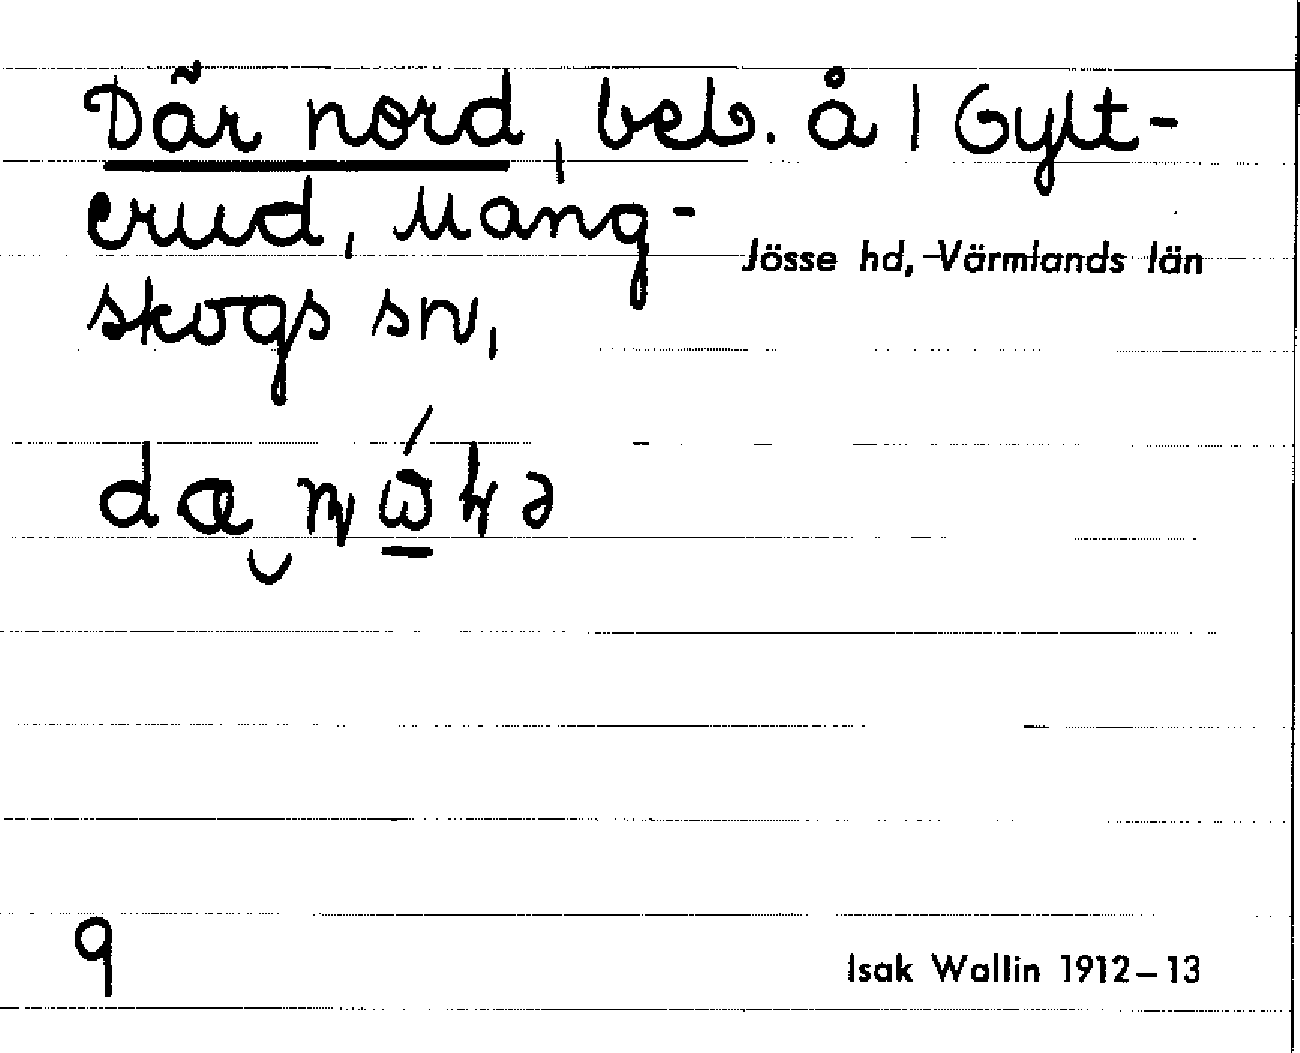 Där nord, beb. å 1 Gylt-
erud, Mang-
skogs sn,
Jösse hd, Värmlands län
9
Isak Wallin 1912–13